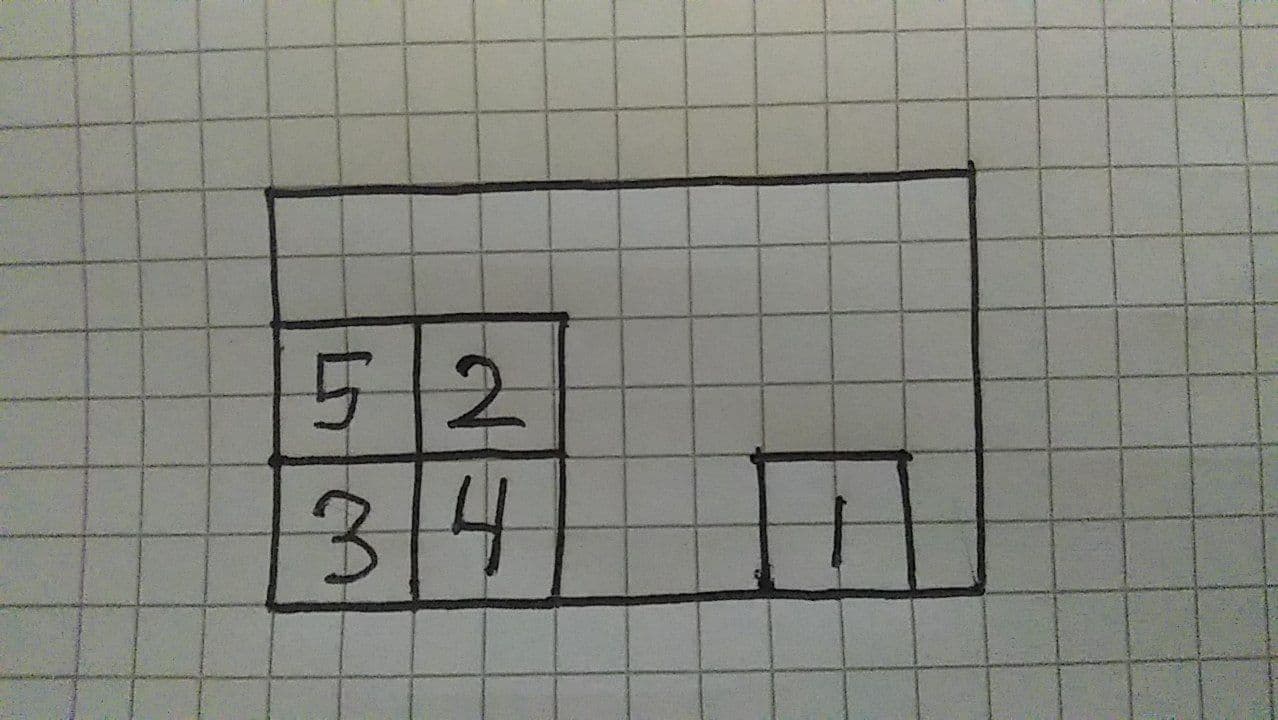 5 2
3 4 1